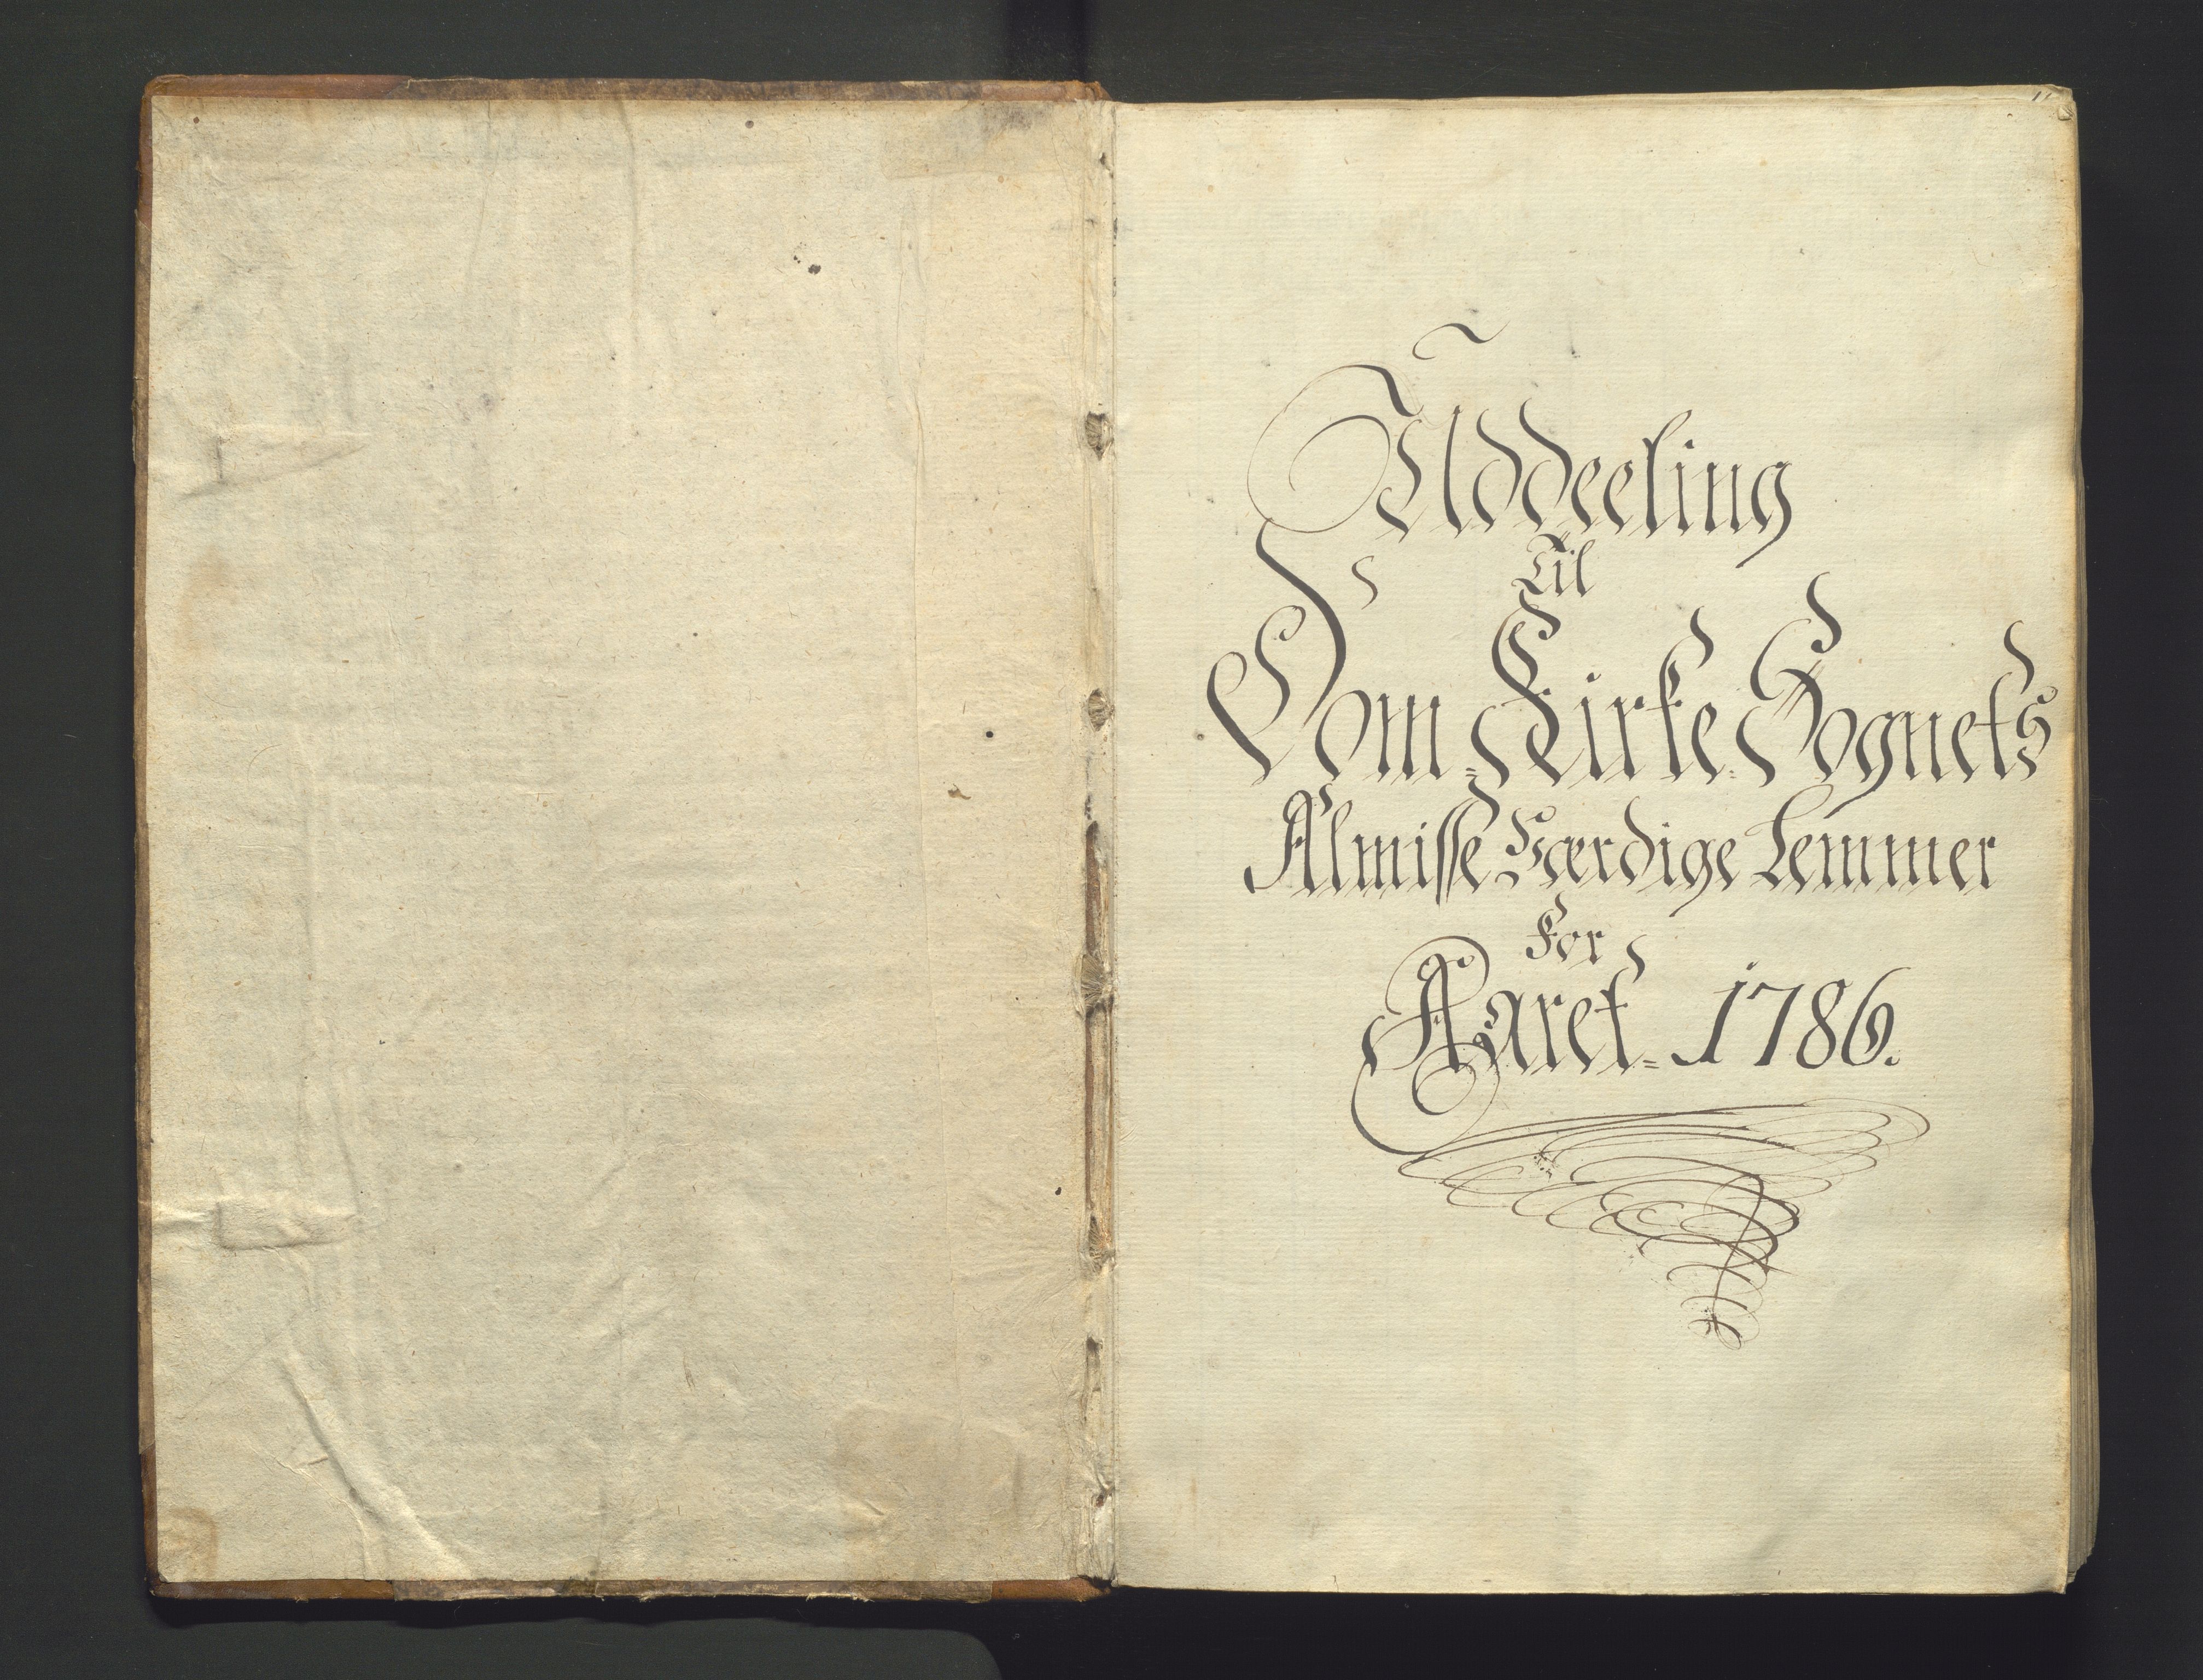 Uddeeling
Til
Dom=Kirke-Sognets
Almisse Værdige Lemmer
For
Aaret= 1786.